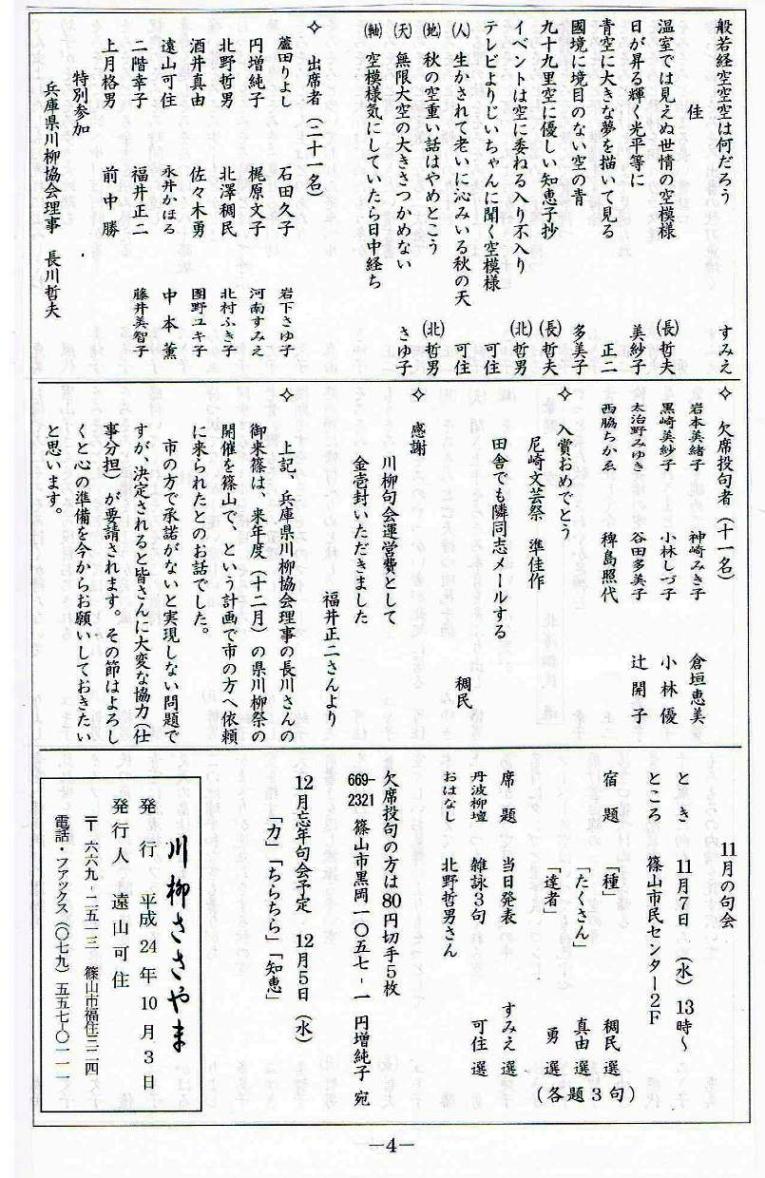 般若経空空空は何だろう　すみえ
佳
温室では見えぬ世情の空模様　(長)哲夫
日が昇る輝く光平等に　美紗子
青空に大きな夢を描いて見る　正二
國境に境目のない空の青　多美子
九十九里空に優しい知恵子抄　(長)哲夫
イベントは空に委ねる入り不入り　(北)哲男
テレビよりじいちゃんに聞く空模様　可住
(人)　生かされて老いに沁みいる秋の天　可住
(地)　秋の空重い話はやめとこう　(北)哲男
(天)　無限大空の大きさつかめない
(軸)　空模様気にしていたら日中経ち　さゆ子
✧　出席者（二十一名）
蘆田りよし　石田久子　岩下さゆ子
円増純子　梶原文子　河南すみえ
北野哲男　北澤稠民　北村ふき子
酒井真由　佐々木勇　園野ユキ子
遠山可住　永井かほる　中本薫
二階幸子　福井正二　藤井美智子
上月格男　前中勝
特別参加
兵庫県川柳協会理事　長川哲夫
✧　欠席投句者（十一名）
岩本美緒子　神崎みき子　倉垣恵美
黒崎美紗子　小林しづ子　小林優
太治野みゆき　谷田多美子　辻開子
西脇ちかゑ　稗島照代
✧　入賞おめでとう
尼崎文芸祭　準佳作
田舎でも隣同志メールする　稠民
✧　感謝
川柳句会運営費として
金壱封いただきました
福井正二さんより
✧　上記、兵庫県川柳協会理事の長川さんの
御来篠は、来年度（十二月）の県川柳祭の
開催を篠山で、という計画で市の方へ依頼
に来られたとのお話でした。
市の方で承諾がないと実現しない問題で
すが、決定されると皆さんに大変な協力（仕
事分担）が要請されます。その節はよろし
くと心の準備を今からお願いしておきたい
と思います。
11月の句会
とき　11月7日（水）13時～
ところ　篠山市民センター2F
宿題　「種」　稠民　選
「たくさん」　真由　選
「達者」　勇　選
（各題3句）
席題　当日発表　すみえ　選
丹波柳壇　雑詠3句　可住　選
おはなし　北野哲男さん
欠席投句の方は80円切手5枚
669-2321　篠山市黒岡一〇五七-一　円増純子　宛
12月忘年句会予定　12月5日（水）
「力」「ちらちら」「知恵」
川柳ささやま
発行　平成24年10月3日
発行人　遠山可住
〒六六九-二五一三　篠山市福住三二四
電話・ファックス（〇七九）五五七-〇一一一
—4—